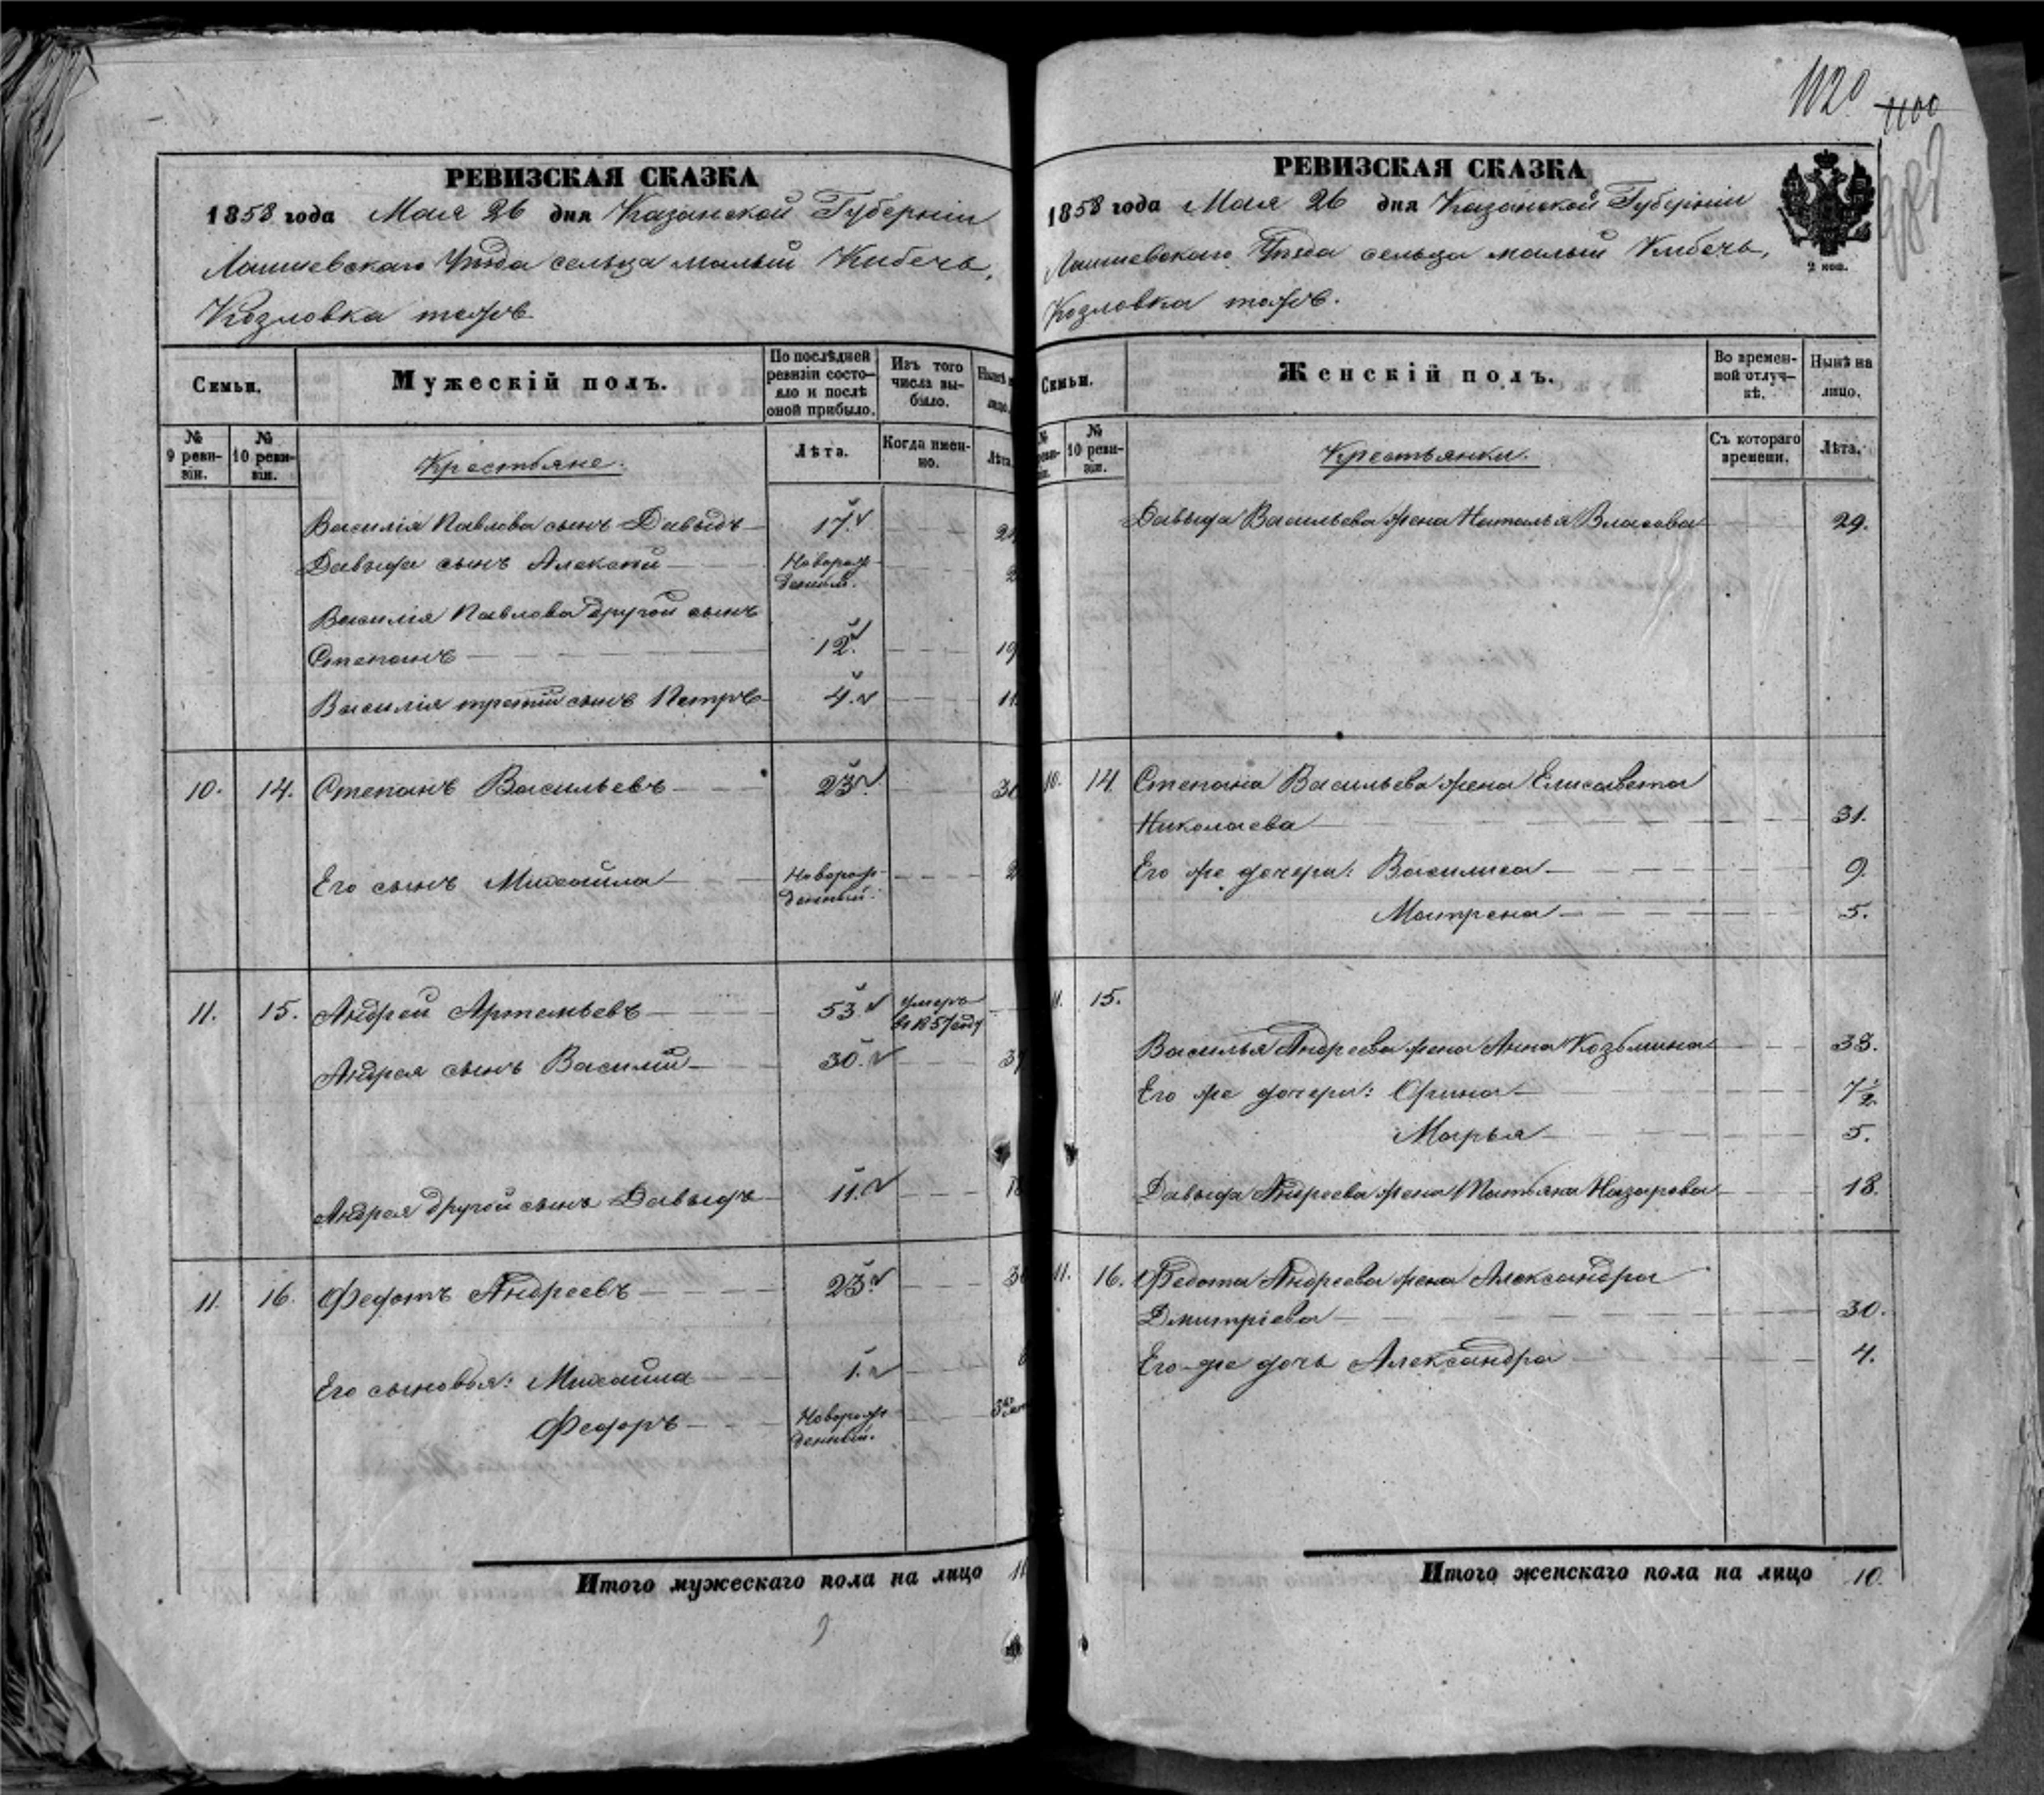 1120
1100
РЕВИЗСКАЯ СКАЗКА
1858 года Мая 26 дня Казанской Губерніи
Лаишевскаго Уѣзда сельца малый Кибечь,
Козловка тожъ
Семьи.
Мужескій полъ.
По послѣдней ревизіи состояло и послѣ оной прибыло.
Изъ того числа выбыло.
№ 9 ревизіи.
№ 10 ревизіи.
Крестьяне.
Лѣта.
Когда именно.
Лѣта.
Василія Павлова сынъ Давыдъ 17.
Давыда сынъ Алексѣй Новорожденный. 2
Василія Павлова другой сынъ
Степанъ 12. 19
Василія третій сынъ Петръ 4. 11
10. 14. Степанъ Васильевъ 23.
Его сынъ Михайла Новорожденный. 2
11. 15. Андрей Артемьевъ 53. умеръ въ 1857 году
Андрея сынъ Василій 30. 37
Андрея другой сынъ Давыдъ 11. 18
11. 16. Федотъ Андреевъ 23.
Его сыновья: Михайла 1.
Федоръ Новорожденный.
Итого мужескаго пола на лицо 11
РЕВИЗСКАЯ СКАЗКА
2 коп.
1858 года Мая 26 дня Казанской Губерніи
Лаишевскаго Уѣзда сельца малый Кибечь,
Козловка тожъ.
Семьи.
Женскій полъ.
Во временной отлучкѣ.
Нынѣ на лицо.
№ 10 ревизіи.
Крестьянки.
Съ котораго времени.
Лѣта.
Давыда Васильева жена Наталья Власова 29.
10. 14 Степана Васильева жена Елисавета
Николаева 31.
Его же дочери: Василиса 9.
Матрена 5.
11. 15.
Василья Андреева жена Анна Козьмина 38.
Его же дочери: Орина 7½
Марья 5.
Давыда Андреева жена Татьяна Назарова 18.
11. 16. Федота Андреева жена Александра
Дмитріева 30.
Его же дочь Александра 4.
Итого женскаго пола на лицо 10.